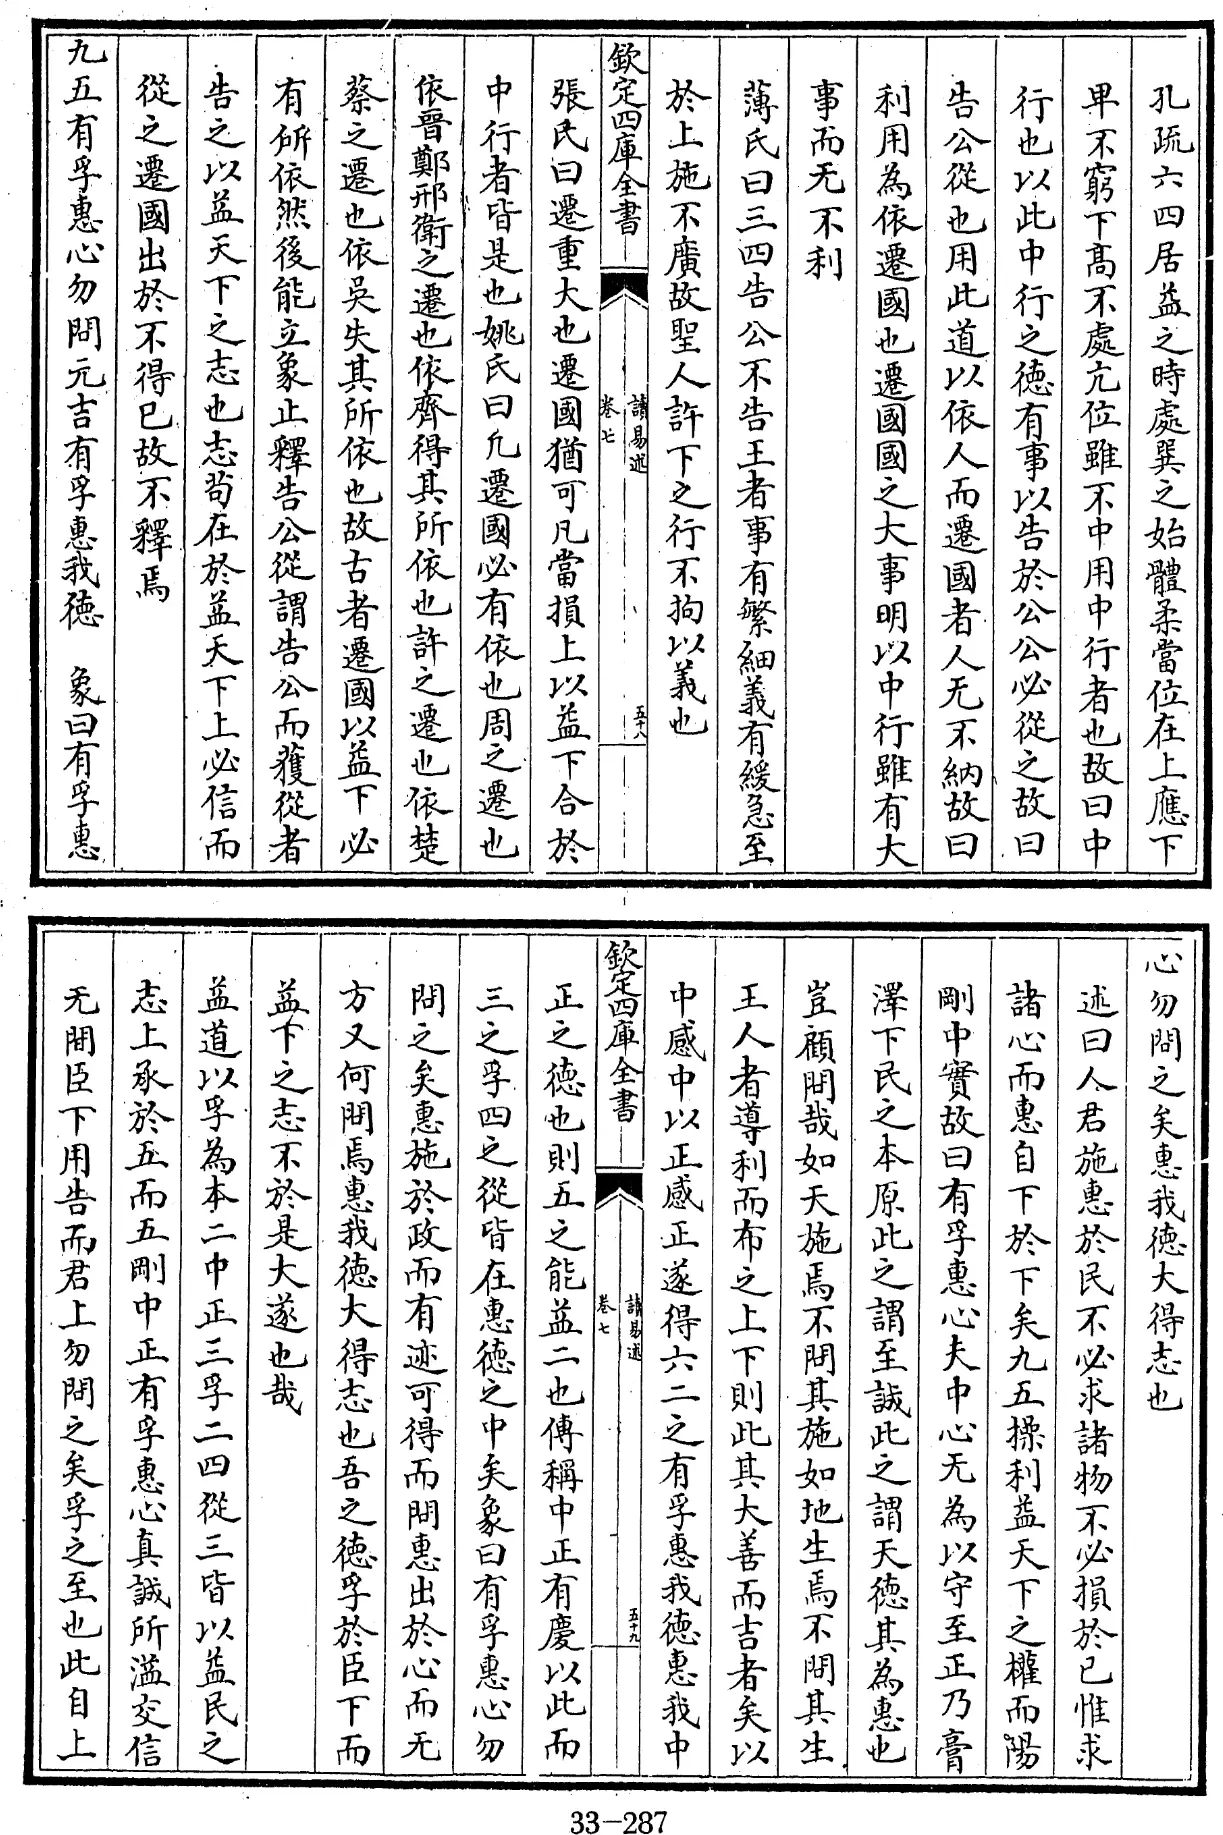 孔疏六四居益之時處巽之始體柔當位在上應下
卑不窮下高不處亢位雖不中用中行者也故曰中
行也以此中行之德有事以告於公公必從之故曰
告公從也用此道以依人而遷國者人无不納故曰
利用為依遷國也遷國國之大事明以中行雖有大
事而无不利
薄氏曰三四告公不告王者事有繁細義有緩急至
於上施不廣故聖人許下之行不拘以義也
欽定四庫全書
讀易述
卷七
五十八
張氏曰遷重大也遷國猶可凡當損上以益下合於
中行者皆是也姚氏曰凡遷國必有依也周之遷也
依晉鄭邢衛之遷也依齊得其所依也許之遷也依楚
蔡之遷也依吳失其所依也故古者遷國以益下必
有所依然後能立象止釋告公從謂告公而獲從者
告之以益天下之志也志苟在於益天下上必信而
從之遷國出於不得已故不釋焉
九五有孚惠心勿問元吉有孚惠我德　象曰有孚惠
心勿問之矣惠我德大得志也
述曰人君施惠於民不必求諸物不必損於已惟求
諸心而惠自下於下矣九五操利益天下之權而陽
剛中實故曰有孚惠心夫中心无為以守至正乃膏
澤下民之本原此之謂至誠此之謂天德其為惠也
豈顧問哉如天施焉不問其施如地生焉不問其生
王人者導利而布之上下則此其大善而吉者矣以
中感中以正感正遂得六二之有孚惠我德惠我中
欽定四庫全書
讀易述
卷七
五十九
正之德也則五之能益二也傳稱中正有慶以此而
三之孚四之從皆在惠德之中矣象曰有孚惠心勿
問之矣惠施於政而有迹可得而問惠出於心而无
方又何問焉惠我德大得志也吾之德孚於臣下而
益下之志不於是大遂也哉
益道以孚為本二中正三孚二四從三皆以益民之
志上承於五而五剛中正有孚惠心真誠所溢交信
无間臣下用告而君上勿問之矣孚之至也此自上
33-287